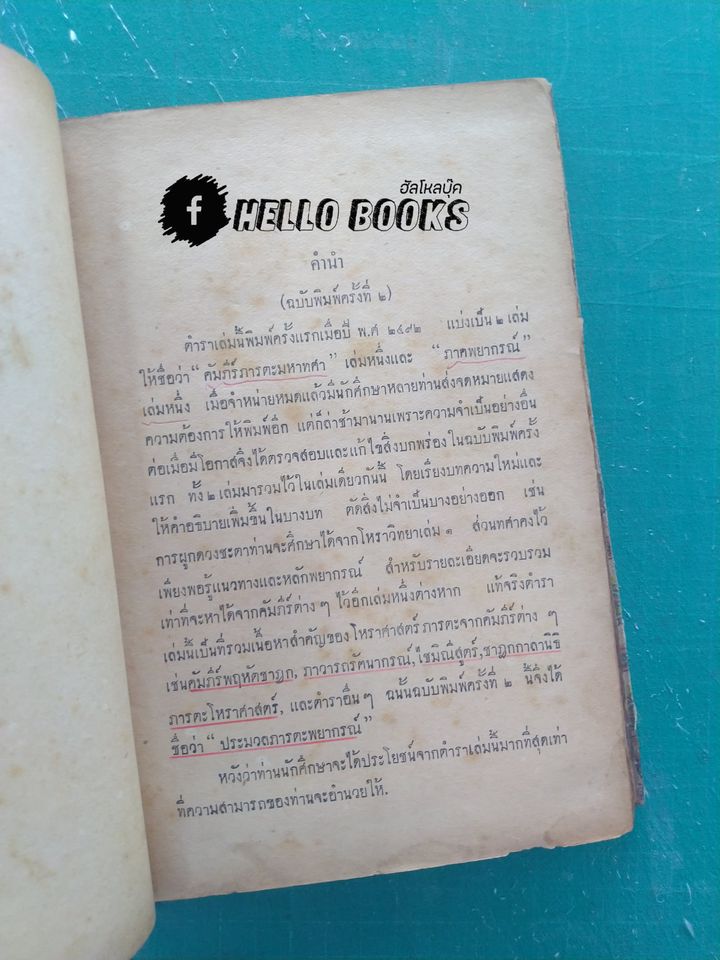 ฮัลโหลบุ๊ค
f HELLO BOOKS
คำนำ
(ฉบับพิมพ์ครั้งที่ ๒)
ตำราเล่มนี้พิมพ์ครั้งแรกเมื่อปี พ.ศ ๒๔๙๒ แบ่งเป็น ๒ เล่ม
ให้ชื่อว่า “คัมภีร์ภารตะมหาทศา” เล่มหนึ่งและ “ภาคพยากรณ์”
เล่มหนึ่ง เมื่อจำหน่ายหมดแล้วมีนักศึกษาหลายท่านส่งจดหมายแสดง
ความต้องการให้พิมพ์อีก แต่ก็ล่าช้ามานานเพราะความจำเป็นอย่างอื่น
ต่อเมื่อมีโอกาสจึงได้ตรวจสอบและแก้ไขสิ่งบกพร่องในฉบับพิมพ์ครั้ง
แรก ทั้ง ๒ เล่มมารวมไว้ในเล่มเดียวกันนี้ โดยเรียงบทความใหม่และ
ให้คำอธิบายเพิ่มขึ้นในบางบท ตัดสิ่งไม่จำเป็นบางอย่างออก เช่น
การผูกดวงชะตาท่านจะศึกษาได้จากโหราวิทยาเล่ม ๑ ส่วนทศาคงไว้
เพียงพอรู้แนวทางและหลักพยากรณ์ สำหรับรายละเอียดจะรวบรวม
เท่าที่จะหาได้จากคัมภีร์ต่าง ๆ ไว้อีกเล่มหนึ่งต่างหาก แท้จริงตำรา
เล่มนี้เป็นที่รวมเนื้อหาสำคัญของโหราศาสตร์ภารตะจากคัมภีร์ต่าง ๆ
เช่นคัมภีร์พฤหัตชาฎก, ภาวารถรัตนากรณ์, ไชมิณีสูตร์, ชาฎกกาลานิธิ
ภารตะโหราศาสตร์, และตำราอื่นๆ ฉนั้นฉบับพิมพ์ครั้งที่ ๒ นี้จึงได้
ชื่อว่า “ประมวลภารตะพยากรณ์”
หวังว่าท่านนักศึกษาจะได้ประโยชน์จากตำราเล่มนี้มากที่สุดเท่า
ที่ความสามารถของท่านจะอำนวยให้.